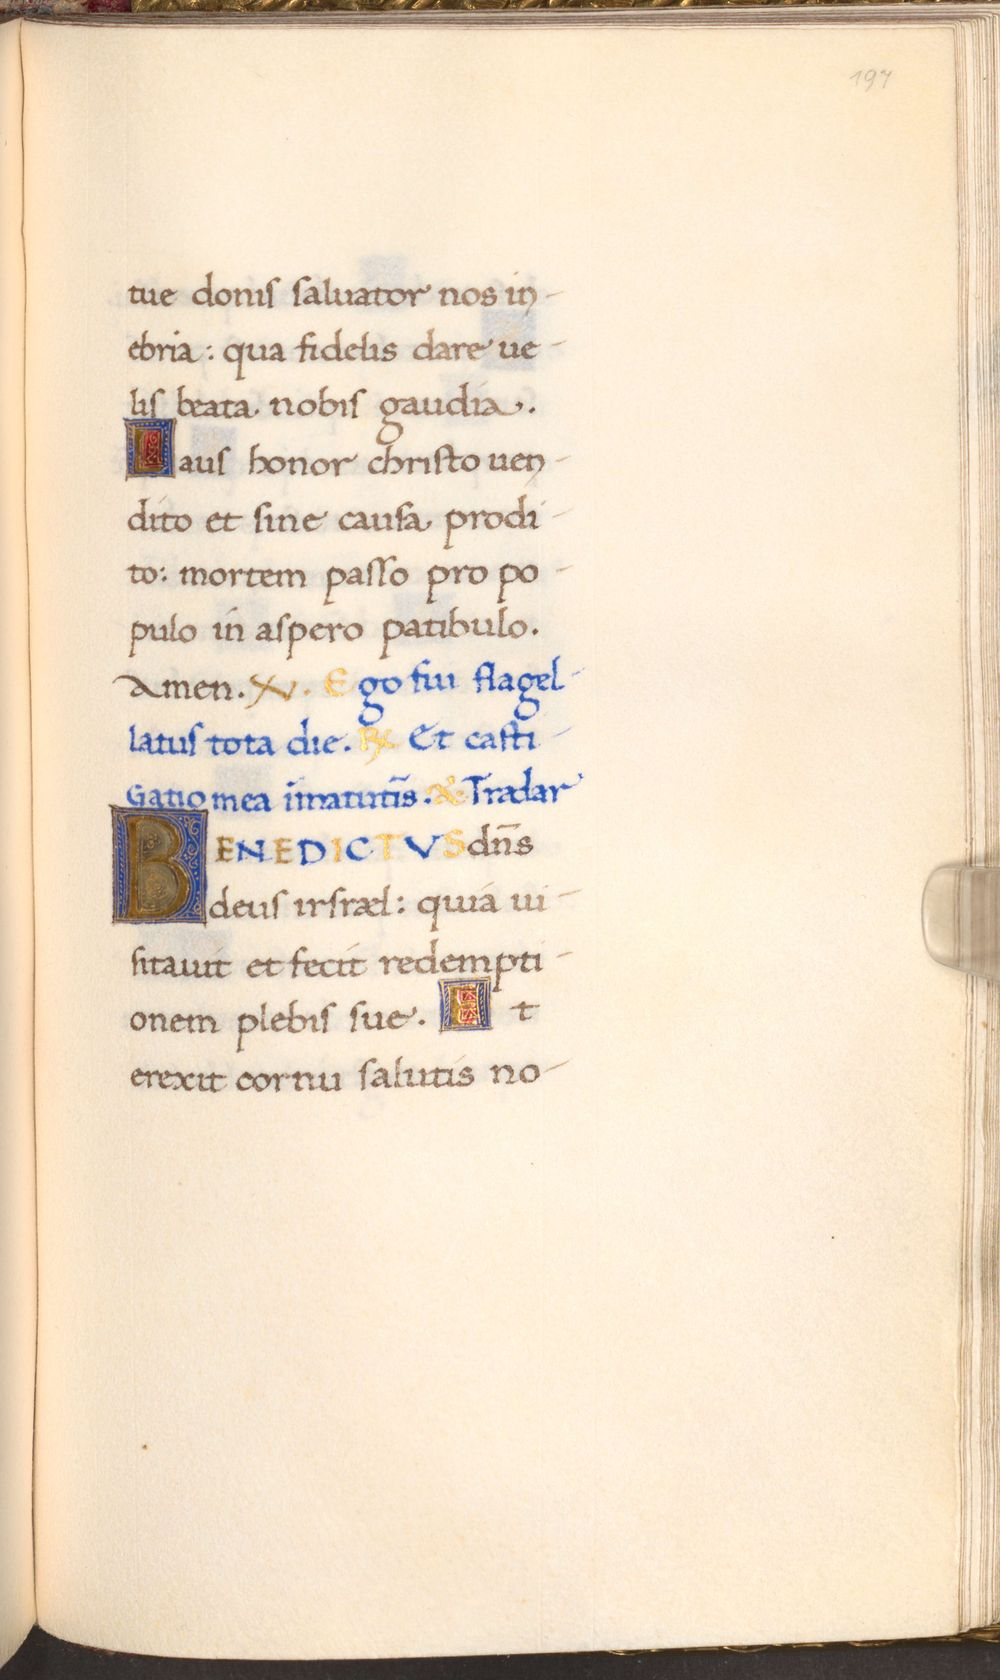 197
tue donis saluator nos in-
ebria: qua fidelis dare ue-
lis beata nobis gaudia.
Laus honor christo uen-
dito et sine causa prodi-
to: mortem passo pro po-
pulo in aspero patibulo.
Amen. V. Ego fui flagel-
latus tota die. R Et casti-
Gatio mea i matutis̄. & Tradar
BENEDICTVS dn̄s
deus irsrael: quia ui-
sitauit et fecit redempti-
onem plebis sue. Et
erexit cornu salutis no-